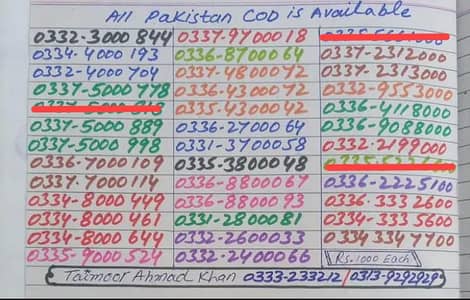 All Pakistan COD is Available
0332-3000 844 0337-97000 18
0334-4000 193 0336-87000 64 0337-2312000
0332-4000 704 0337-48000 72 0337-2313000
0337-5000 778 0336-43000 72 0332-9553000
0335-43000 42 0336-4118000
0337-5000 889 0336-27000 64 0336-9088000
0337-5000 998 0331-37000 58 0332-2199000
0336-7000 109 0335-38000 48
0337-7000 114 0336-88000 67 0336-222 5100
0334-8000 449 0336-88000 93 0336-333 2600
0334-8000 461 0331-28000 81 0334-333 5600
0334-8000 644 0332-26000 33 0334 334 7700
0335-9000 524 0332-24000 66 Rs.1000 Each
Taimoor Ahmad Khan 0333-233212 / 0313-9292929